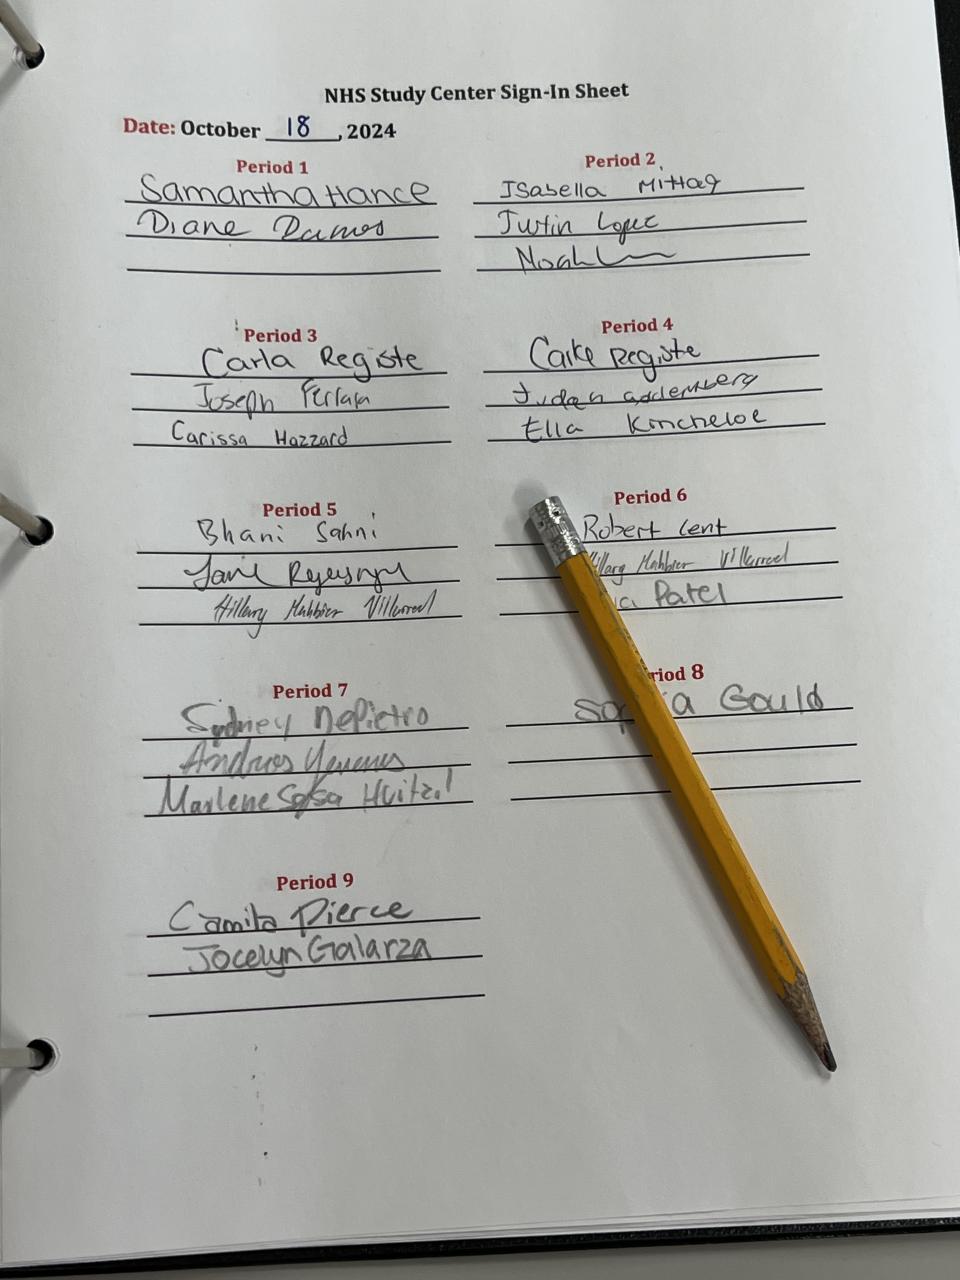 NHS Study Center Sign-In Sheet
Date: October 18, 2024
Period 1
Samantha Hance
Diane Ramos
Period 2
Isabella Mittag
Justin Lopez
Noah
Period 3
Carla Registe
Joseph
Carissa Hazzard
Period 4
Registe
Ella Kincheloe
Period 5
Bhani Sahni
Hillary Mahbier Villarreal
Period 6
Robert Lent
Mahbier Villarreal
Patel
Period 7
Sydney DePietro
Andres
Marlene Sosa Huitzil
riod 8
Gould
Period 9
Camila Pierce
Jocelyn Galarza